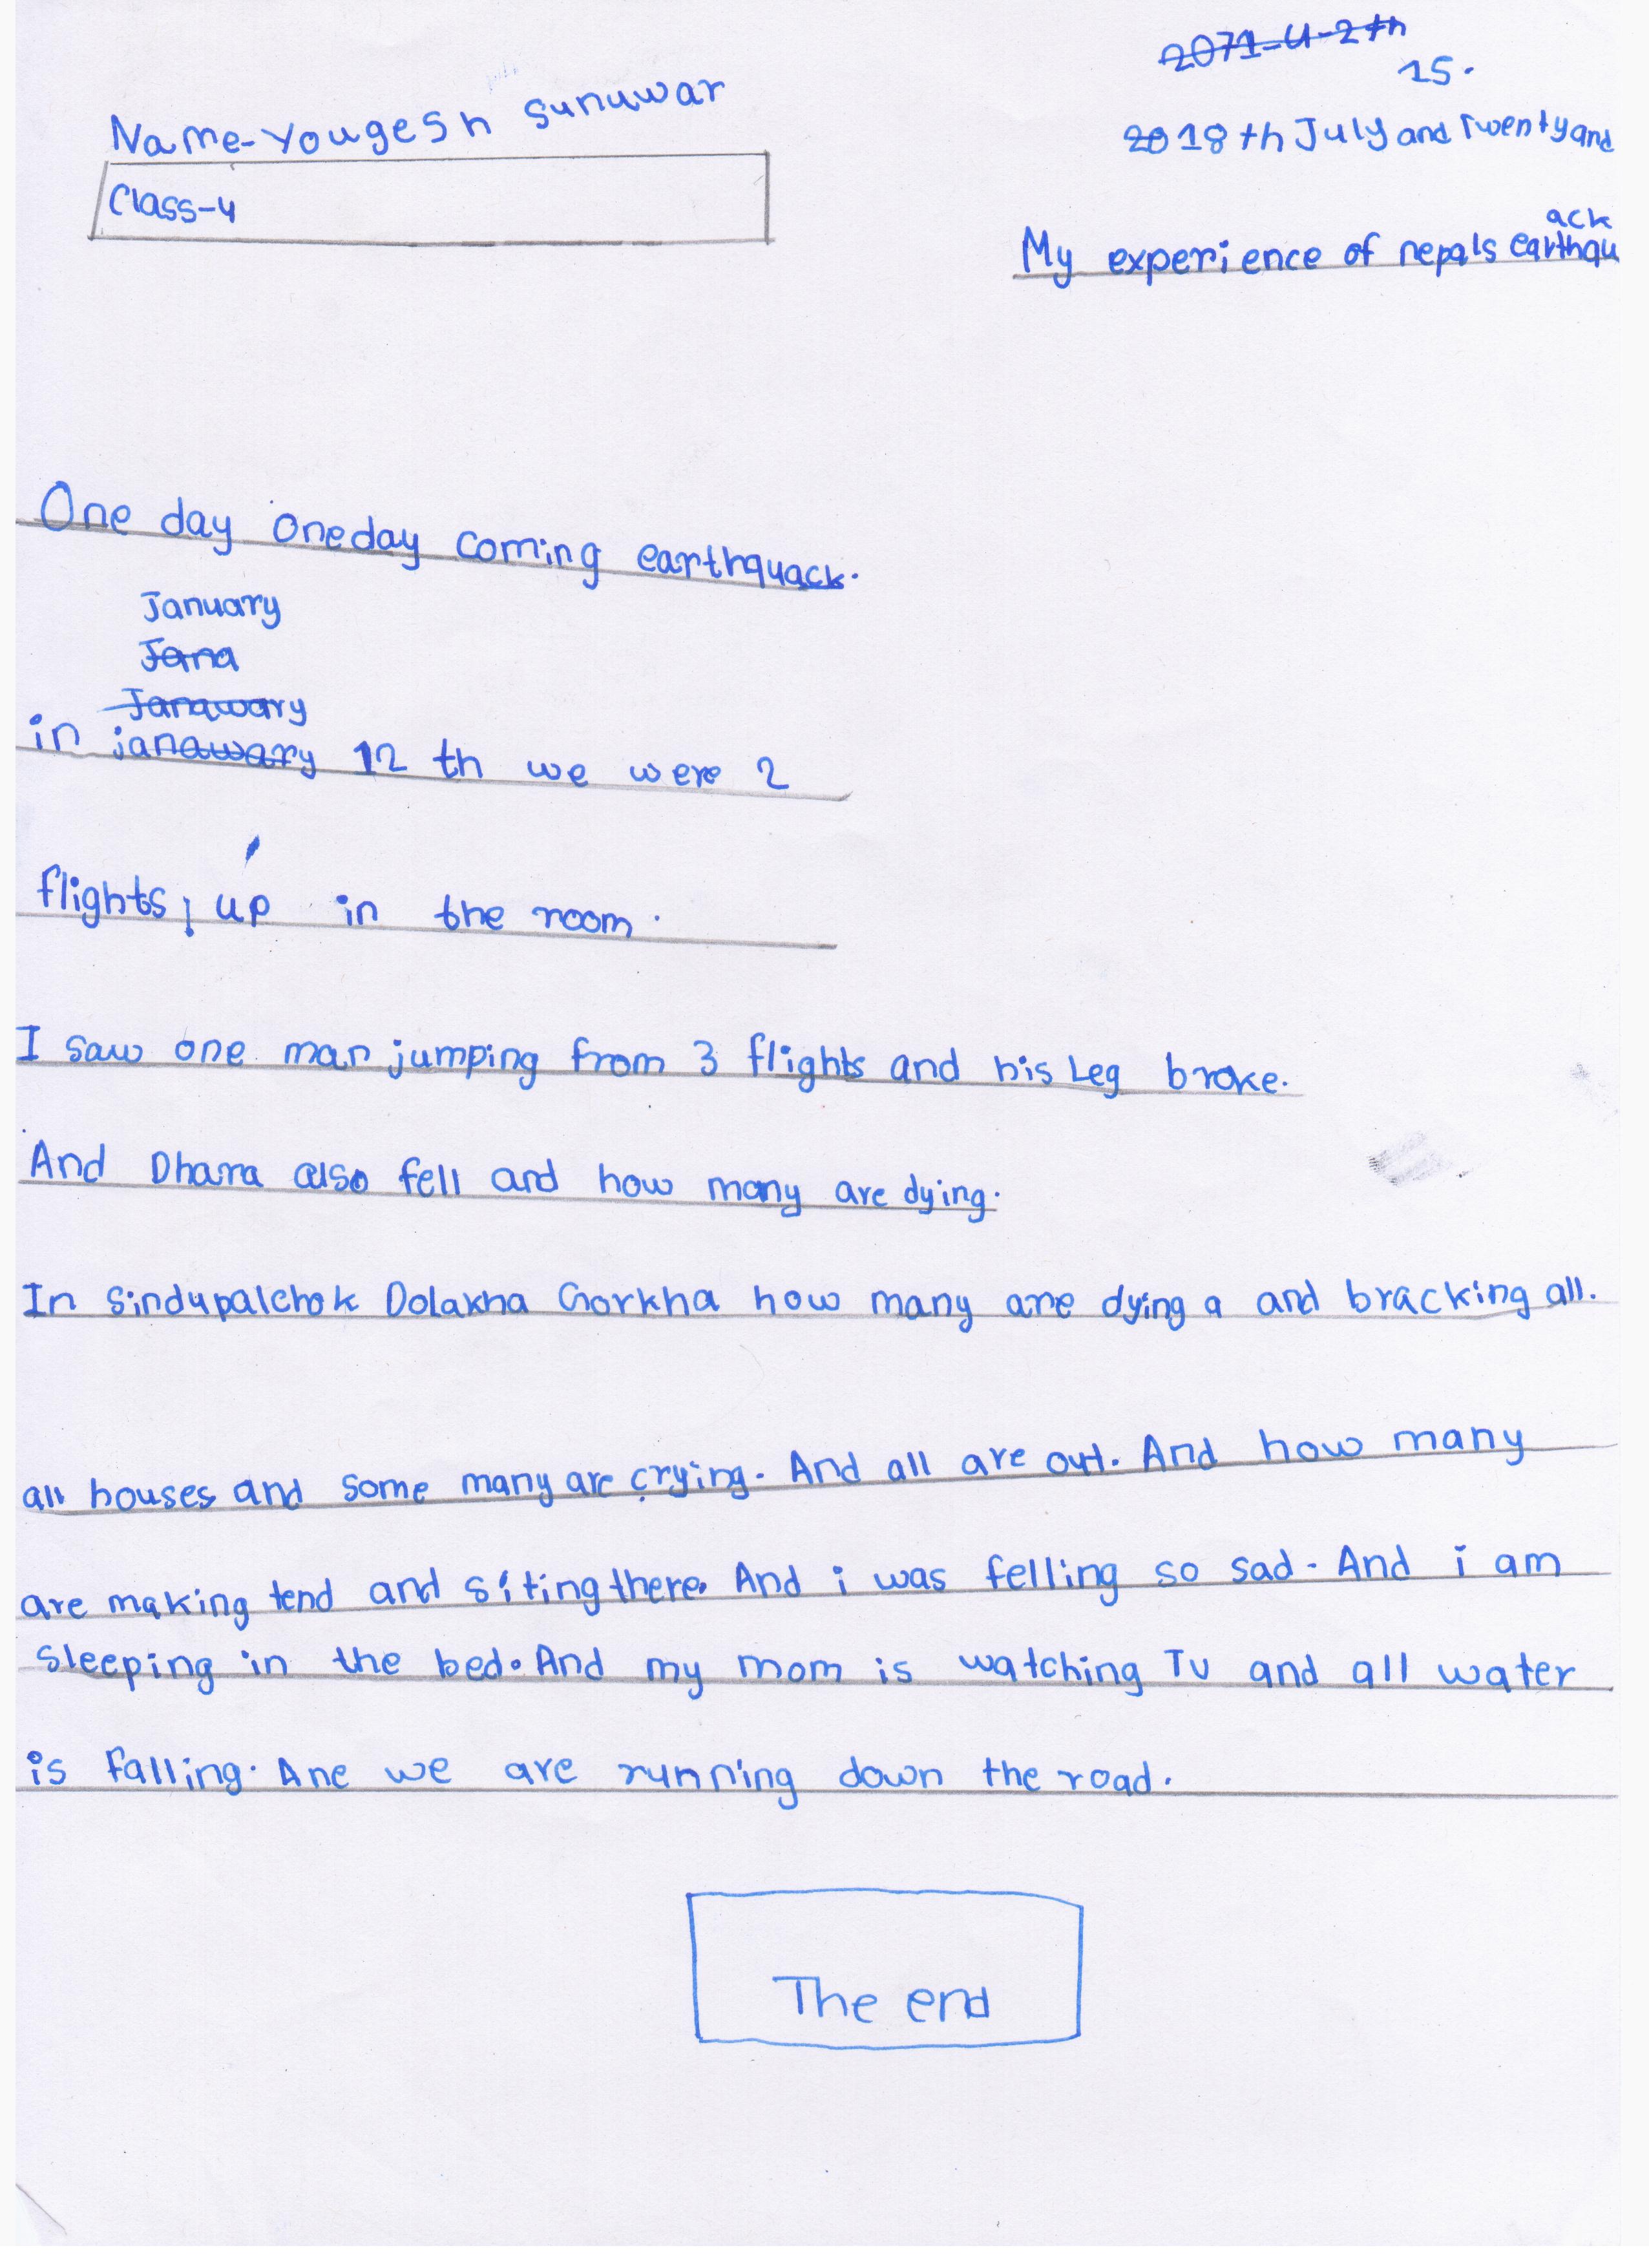 2071-4-2th
15.
Name-Yougesh sunuwar
2018th July and Twenty and
Class-4
ack
My experience of nepals earthqu
One day oneday coming earthquack.
January
Jana
Janawary
in janawary 12 th we were 2
flights, up in the room.
I saw one man jumping from 3 flights and his Leg broke.
And Dhara also fell and how many are dying.
In Sindupalchok Dolakha Gorkha how many are dying a and bracking all.
all houses and some many are crying. And all are out. And how many
are making tend and siting there. And i was felling so sad. And i am
sleeping in the bed. And my mom is watching TV and all water
is falling. Ane we are running down the road.
The end